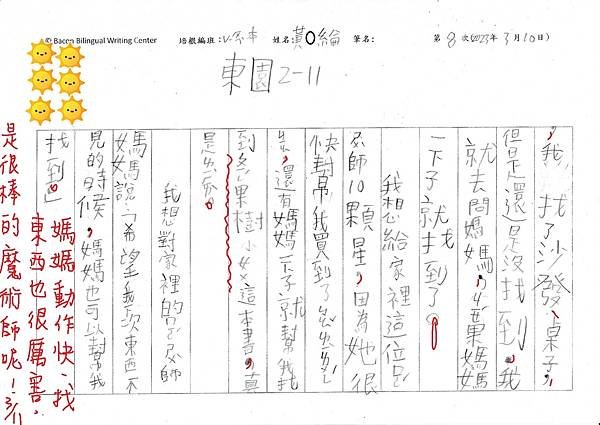 © Bacon Bilingual Writing Center 培根編班: 姓名 黃O綸 筆名: 第 8 次(2023年 3 月 10 日)
東園2-11
,我找了沙發、桌子,
但是還是沒找到。我
就去問媽媽,結果媽媽
一下子就找到了。
我想給家裡這位ㄇㄛˊ
ㄕㄨˋ師10顆星,因為她很
快幫我買到了
,還有媽媽一下子就幫我找
到 果樹小女 這本書,真
是
我想對家裡的 師
媽媽說:「希望我下次東西不
見的時候,媽媽也可以幫我
找到」。
媽媽動作快、找
東西也很厲害。
是很棒的魔術師呢!3/11